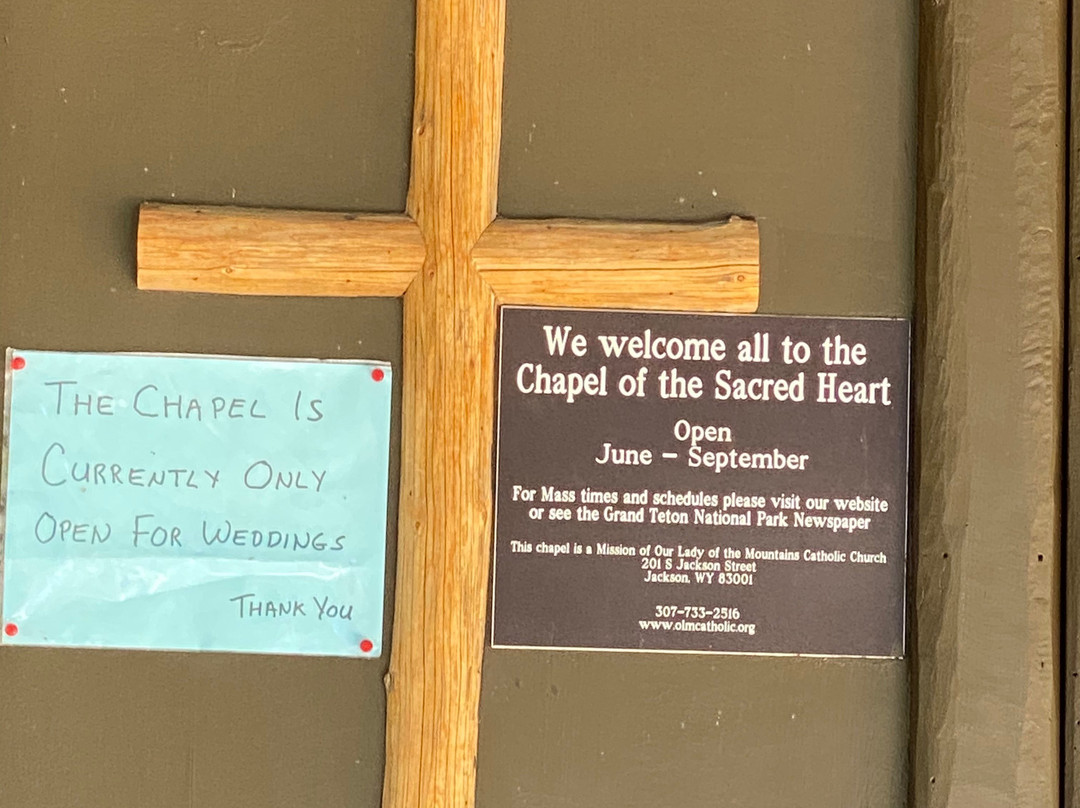 THE CHAPEL IS
CURRENTLY ONLY
OPEN FOR WEDDINGS
THANK YOU
We welcome all to the
Chapel of the Sacred Heart
Open
June – September
For Mass times and schedules please visit our website
or see the Grand Teton National Park Newspaper
This chapel is a Mission of Our Lady of the Mountains Catholic Church
201 S Jackson Street
Jackson, WY 83001
307-733-2516
www.olmcatholic.org